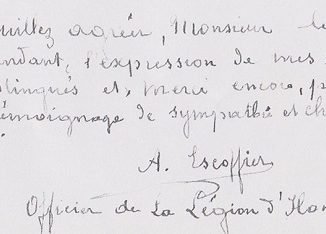 uillez agréer, Monsieur le
endant, l'expression de mes
tingués et, merci encore, p
émoignage de sympathie et ch
A. Escoffier
Officier de La Légion d'Hon